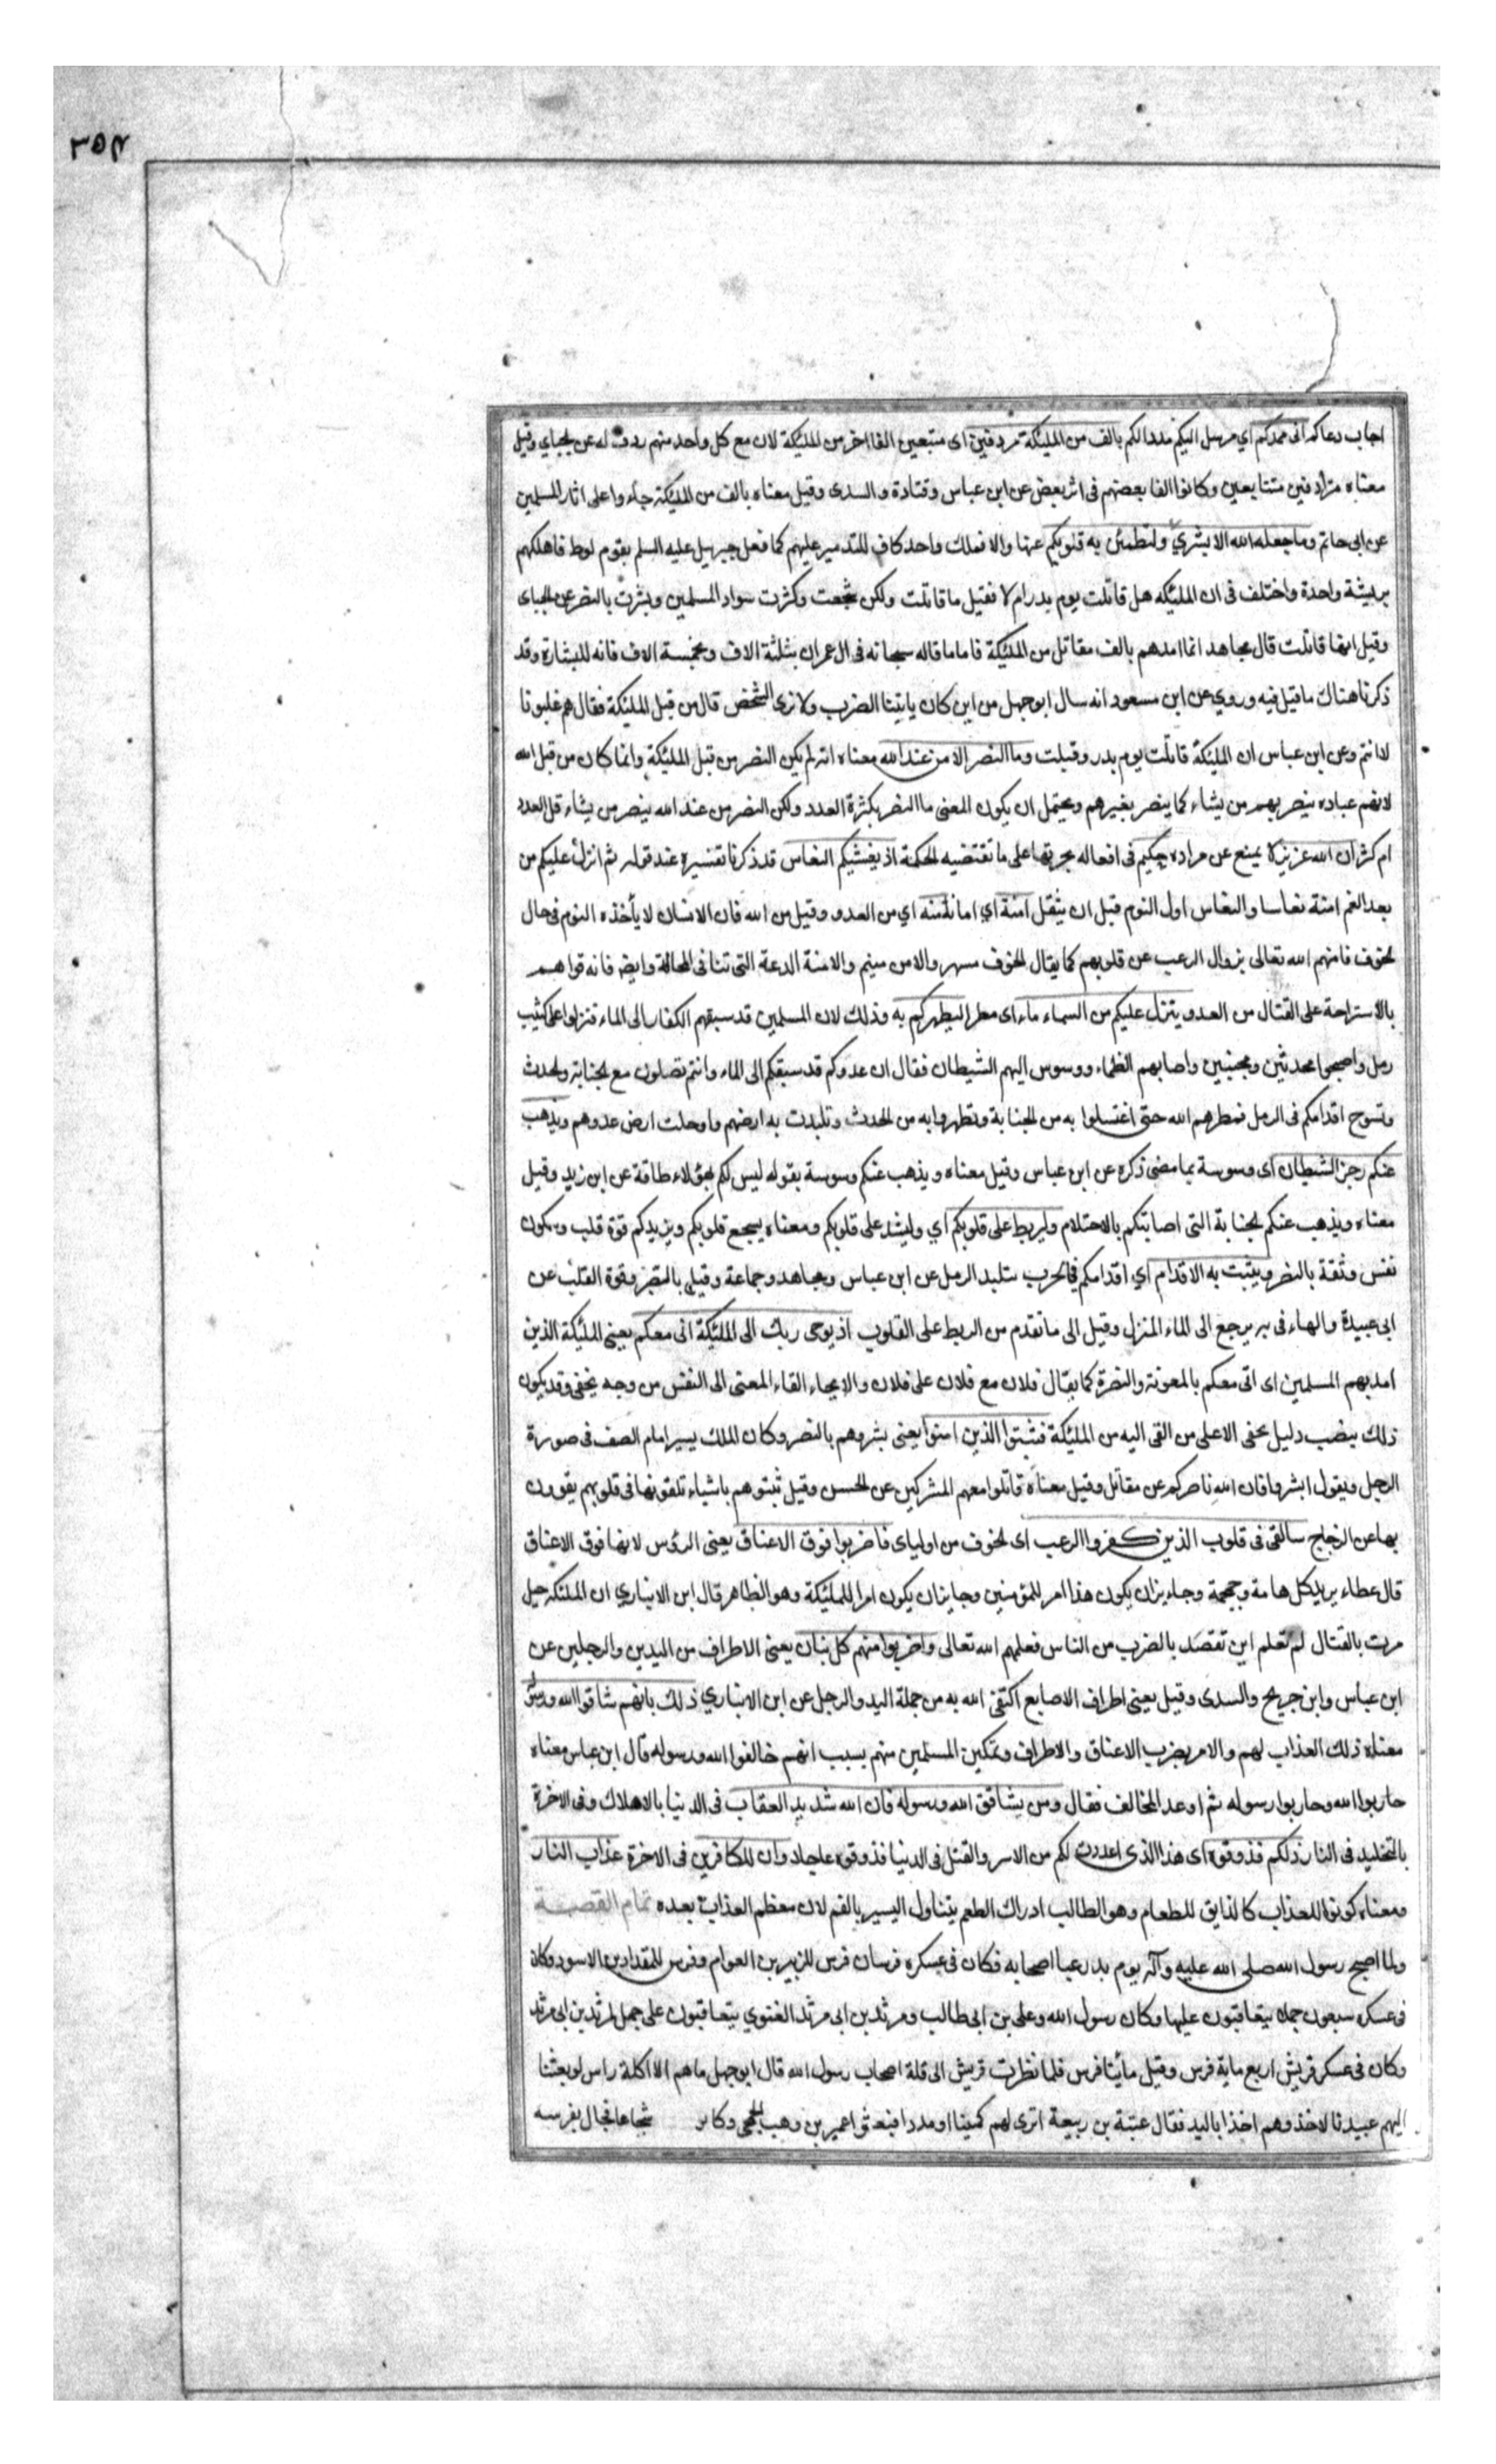 ۳۵۲
اجاب دعاكم انى ممدكم اي مرسل اليكم مددا لكم بالف من الملئكة مردفين اى متبعين الفا اخر من الملئكة لان مع كل واحد منهم ردف له عن الجباي وقيل
معناه مترادفين متتابعين وكانوا الفا بعضهم فى اثر بعض عن ابن عباس وقتادة والسدى وقيل معناه بالف من الملئكة جاءوا على اثار المسلمين
عن ابى حاتم وما جعله الله الا بشرى ولتطمئن به قلوبكم عنها والا فملك واحد كاف للتدمير عليهم كما فعل جبريل عليه السلم بقوم لوط فاهلكهم
بريشة واحدة واختلف فى ان الملئكه هل قاتلت يوم بدر ام لا فقيل ما قاتلت ولكن شجعت وكثرت سواد المسلمين وبشرت بالنصر عن الجباى
وقيل انها قاتلت قال مجاهد انما امدهم بالف مقاتل من الملئكة فاما ما قاله سبحانه فى ال عمران بثلثة الاف وبخمسة الاف فانه للبشارة وقد
ذكرنا هناك ما قيل فيه وروي عن ابن مسعود انه سال ابو جهل من اين كان ياتينا الضرب ولا نرى الشخص قال من قبل الملئكة فقال هم غلبونا
لا انتم وعن ابن عباس ان الملئكة قاتلت يوم بدر وقتلت وما النصر الا من عند الله معناه انه لم يكن النصر من قبل الملئكة وانما كان من قبل الله
لانهم عباده ينصر بهم من يشاء كما ينصر بغيرهم ويحتمل ان يكون المعنى ما النصر بكثرة العدد ولكن النصر من عند الله ينصر من يشاء قل العدد
ام كثر ان الله عزيز لا يمنع عن مراده حكيم فى افعاله يجريها على ما تقتضيه الحكمة اذ يغشيكم النعاس قد ذكرنا تفسيره عند قوله ثم انزل عليكم من
بعد الغم امنة نعاسا والنعاس اول النوم قبل ان يثقل امنة اي امانا منه اي من العدو وقيل من الله فان الانسان لا يأخذه النوم فى حال
الخوف فامنهم الله تعالى بزوال الرعب عن قلوبهم كما يقال الخوف مسهر والامن منيم والامنة الدعة التى تنافى المخافة وايض فانه قواهم
بالاستراحة على القتال من العدو ينزل عليكم من السماء ماء اى مطرا ليطهركم به وذلك لان المسلمين قد سبقهم الكفار الى الماء فنزلوا على كثيب
رمل واصبحوا محدثين ومجنبين واصابهم الظماء ووسوس اليهم الشيطان فقال ان عدوكم قد سبقكم الى الماء وانتم تصلون مع الجنابة والحدث
وتسوخ اقدامكم فى الرمل فمطرهم الله حتى اغتسلوا به من الجنابة وتطهروا به من الحدث وتلبدت به ارضهم واوحلت ارض عدوهم ويذهب
عنكم رجز الشيطان اى وسوسة بما مضى ذكره عن ابن عباس وقيل معناه ويذهب عنكم وسوسة بقوله ليس لكم بهؤلاء طاقة عن ابن زيد وقيل
معناه ويذهب عنكم الجنابة التى اصابتكم بالاحتلام وليربط على قلوبكم اي وليشد على قلوبكم ومعناه يشجع قلوبكم ويزيدكم قوة قلب وسكون
نفس وثقة بالنصر ويثبت به الاقدام اي اقدامكم فى الحرب بتلبد الرمل عن ابن عباس ومجاهد وجماعة وقيل بالصبر وقوة القلب عن
ابى عبيدة والهاء فى به يرجع الى الماء المنزل وقيل الى ما تقدم من الربط على القلوب اذ يوحى ربك الى الملئكة انى معكم يعنى الملئكة الذين
امد بهم المسلمين اى انى معكم بالمعونة والنصرة كما يقال فلان مع فلان على فلان والايحاء القاء المعنى الى النفس من وجه يخفى وقد يكون
ذلك بنصب دليل يخفى الا على من القى اليه من الملئكة فثبتوا الذين امنوا يعنى بشروهم بالنصر وكان الملك يسير امام الصف فى صورة
الرجل ويقول ابشروا فان الله ناصركم عن مقاتل وقيل معناه قاتلوا معهم المشركين عن الحسن وقيل ثبتوهم باشياء تلقونها فى قلوبهم يقوون
بها عن الزجاج سالقى فى قلوب الذين كفروا الرعب اى الخوف من اولياى فاضربوا فوق الاعناق يعنى الرؤس لانها فوق الاعناق
قال عطاء يريد كل هامة وجمجمة وجاء يزان يكون هذا امر للمؤمنين وجايزان يكون امرا للملئكة وهو الظاهر قال ابن الانباري ان الملئكه حيل
مرت بالقتال لم تعلم اين تقصد بالضرب من الناس فعلمهم الله تعالى واضربوا منهم كل بنان يعنى الاطراف من اليدين والرجلين عن
ابن عباس وابن جريح والسدى وقيل يعنى اطراف الاصابع اكتفى الله به من جملة اليد والرجل عن ابن الانباري ذلك بانهم شاقوا الله ورسوله
معناه ذلك العذاب لهم والامر بضرب الاعناق والاطراف وتمكين المسلمين منهم بسبب انهم خالفوا الله ورسوله قال ابن عباس معناه
حاربوا الله وحاربوا رسوله ثم اوعد المخالف فقال ومن يشاقق الله ورسوله فان الله شديد العقاب فى الدنيا بالاهلاك وفى الاخرة
بالتخليد فى النار ذلكم فذوقوه اى هذا الذى اعددت لكم من الاسر والقتل فى الدنيا فذوقوه عاجلا وان للكافرين فى الاخرة عذاب النار
ومعناه كونوا للعذاب كالذايق للطعام وهو الطالب ادراك الطعم يتناول اليسير بالفم لان معظم العذاب بعده تمام القصة
ولما اصبح رسول الله صلى الله عليه وآله يوم بدر عبا اصحابه فكان فى عسكره فرسان فرس للزبير بن العوام وفرس للمقداد بن الاسود وكان
فى عسكره سبعون جملا يتعاقبون عليها وكان رسول الله وعلى بن ابى طالب ومرثد بن ابى مرثد الغنوي يتعاقبون على جمل لمرثد بن ابى مرثد
وكان فى عسكر قريش اربع ماية فرس وقيل مأيتا فرس فلما نظرت قريش الى قلة اصحاب رسول الله قال ابو جهل ما هم الا اكلة راس لو بعثنا
اليهم عبيدنا لاخذوهم اخذا باليد فقال عتبة بن ربيعة اترى لهم كمينا او مددا فبعثوا عمير بن وهب الجمحى وكان شجاعا فجال بفرسه